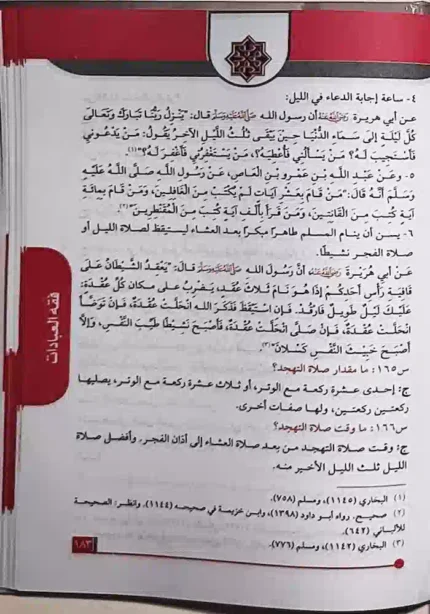 ٤- ساعة إجابة الدعاء في الليل:
عن أبي هريرة رَضِيَ اللَّهُ عَنْهُ أن رسول الله صَلَّى اللَّهُ عَلَيْهِ وَسَلَّمَ قال: "يَنْزِلُ رَبُّنَا تَبَارَكَ وَتَعَالَى
كُلَّ لَيْلَةٍ إِلَى سَمَاءِ الدُّنْيَا حِينَ يَبْقَى ثُلُثُ اللَّيْلِ الآخِرُ يَقُولُ: مَنْ يَدْعُونِي
فَأَسْتَجِيبَ لَهُ؟ مَنْ يَسْأَلُنِي فَأُعْطِيَهُ؟، مَنْ يَسْتَغْفِرُنِي فَأَغْفِرَ لَهُ؟"(١).
٥- وعَنْ عَبْدِ اللَّهِ بْنِ عَمْرِو بْنِ الْعَاصِ، عَنْ رَسُولِ اللَّهِ صَلَّى اللَّهُ عَلَيْهِ
وَسَلَّمَ أَنَّهُ قَالَ: "مَنْ قَامَ بِعَشْرِ آيَاتٍ لَمْ يُكْتَبْ مِنَ الْغَافِلِينَ، وَمَنْ قَامَ بِمِائَةِ
آيَةٍ كُتِبَ مِنَ الْقَانِتِينَ، وَمَنْ قَرَأَ بِأَلْفِ آيَةٍ كُتِبَ مِنَ الْمُقَنْطِرِينَ"(٢).
٦- يسن أن ينام المسلم طاهرًا مبكرًا بعد العشاء ليستيقظ لصلاة الليل أو
صلاة الفجر نشيطًا.
عَنْ أَبِي هُرَيْرَةَ رَضِيَ اللَّهُ عَنْهُ أَنَّ رَسُولَ الله صَلَّى اللَّهُ عَلَيْهِ وَسَلَّمَ قَالَ: "يَعْقِدُ الشَّيْطَانُ عَلَى
قَافِيَةِ رَأْسِ أَحَدِكُمْ إِذَا هُوَ نَامَ ثَلاَثَ عُقَدٍ يَضْرِبُ عَلَى مكان كُلِّ عُقْدَةٍ:
عَلَيْكَ لَيْلٌ طَوِيلٌ فَارْقُدْ. فَإِنِ اسْتَيْقَظَ فَذَكَرَ اللهَ انْحَلَّتْ عُقْدَةٌ، فَإِنْ تَوَضَّأَ
انْحَلَّتْ عُقْدَةٌ، فَإِنْ صَلَّى انْحَلَّتْ عُقْدَةٌ، فَأَصْبَحَ نَشِيطًا طَيِّبَ النَّفْسِ، وَإِلاَّ
أَصْبَحَ خَبِيثَ النَّفْسِ كَسْلاَنَ"(٣).
س١٦٥: ما مقدار صلاة التهجد؟
ج: إحدى عشرة ركعة مع الوتر، أو ثلاث عشرة ركعة مع الوتر، يصليها
ركعتين ركعتين، ولها صفات أخرى.
س١٦٦: ما وقت صلاة التهجد؟
ج: وقت صلاة التهجد من بعد صلاة العشاء إلى أذان الفجر. وأفضل صلاة
الليل ثلث الليل الأخير منه.
(١) البخاري (١١٤٥)، ومسلم (٧٥٨).
(٢) صحيح. رواه أبو داود (١٣٩٨)، وابن خزيمة في صحيحه (١١٤٤). وانظر: الصحيحة
للألباني (٦٤٢).
(٣) البخاري (١١٤٢)، ومسلم (٧٧٦).
١٨٣
فقه العبادات